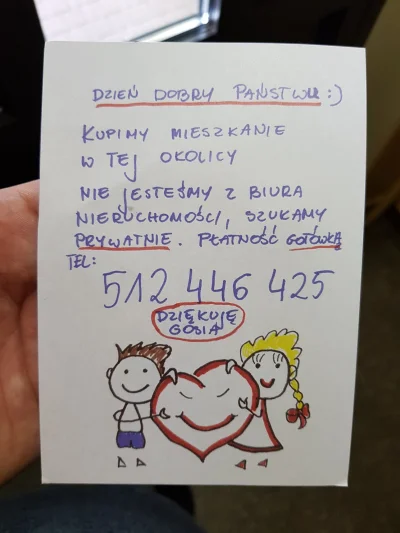 DZIEŃ DOBRY PAŃSTWU :)
KUPIMY MIESZKANIE
W TEJ OKOLICY
NIE JESTEŚMY Z BIURA
NIERUCHOMOŚCI, SZUKAMY
PRYWATNIE. PŁATNOŚĆ GOTÓWKĄ
TEL:
512 446 425
DZIĘKUJĘ
GOSIA